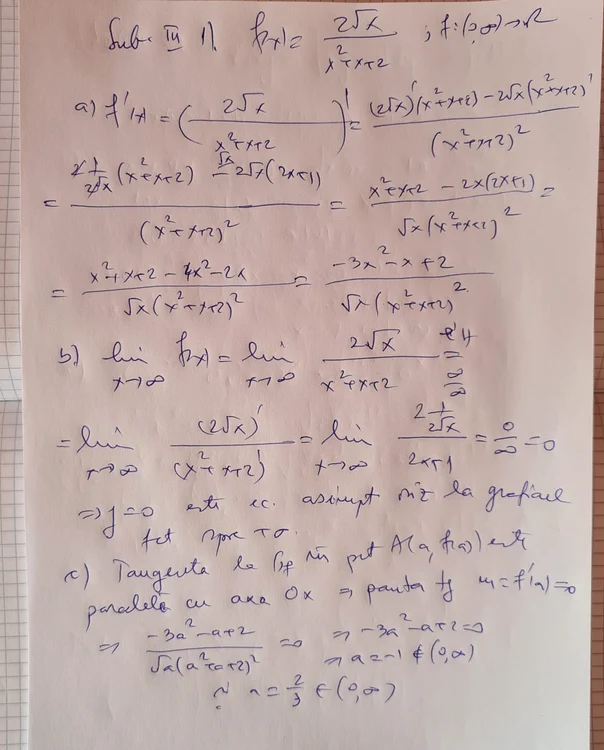 Sub. III 1). f(x) = 2√x / x²+x+2 ; f:(0,∞)→R
a) f'(x) = (2√x / x²+x+2)' = (2√x)'(x²+x+2) - 2√x(x²+x+2)' / (x²+x+2)²
= 2 1/2√x (x²+x+2) - 2√x(2x+1) / (x²+x+2)² = x²+x+2 - 2x(2x+1) / √x(x²+x+2)² =
= x²+x+2-4x²-2x / √x(x²+x+2)² = -3x²-x+2 / √x(x²+x+2)²
b) lim x→∞ f(x) = lim x→∞ 2√x / x²+x+2 = l'H ∞/∞
= lim x→∞ (2√x)' / (x²+x+2)' = lim x→∞ 2 1/2√x / 2x+1 = 0/∞ = 0
⇒ y=0 este ec. asimpt oriz la graficul
fct spre +∞.
c) Tangenta la Gf în pct A(a, f(a)) este
paralelă cu axa Ox ⇒ panta tg m = f'(a) = 0
⇒ -3a²-a+2 / √a(a²+a+2)² = 0 ⇒ -3a²-a+2=0
⇒ a=-1 ∉ (0,∞)
și a = 2/3 ∈ (0,∞)